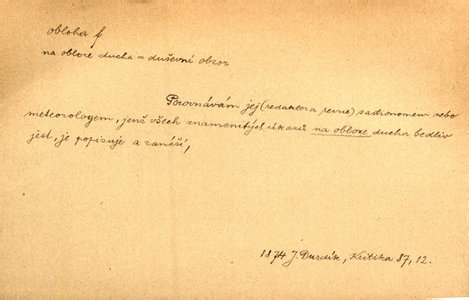 obloha f
na obloze ducha = duševní obzor
Porovnávám jej (redaktora revue) s astronomem nebo
meteorologem, jenž všech znamenitých úkazů na obloze ducha bedliv
jest, je popisuje a zanáší,
1874 J. Durdík, Kritika 87, 12.